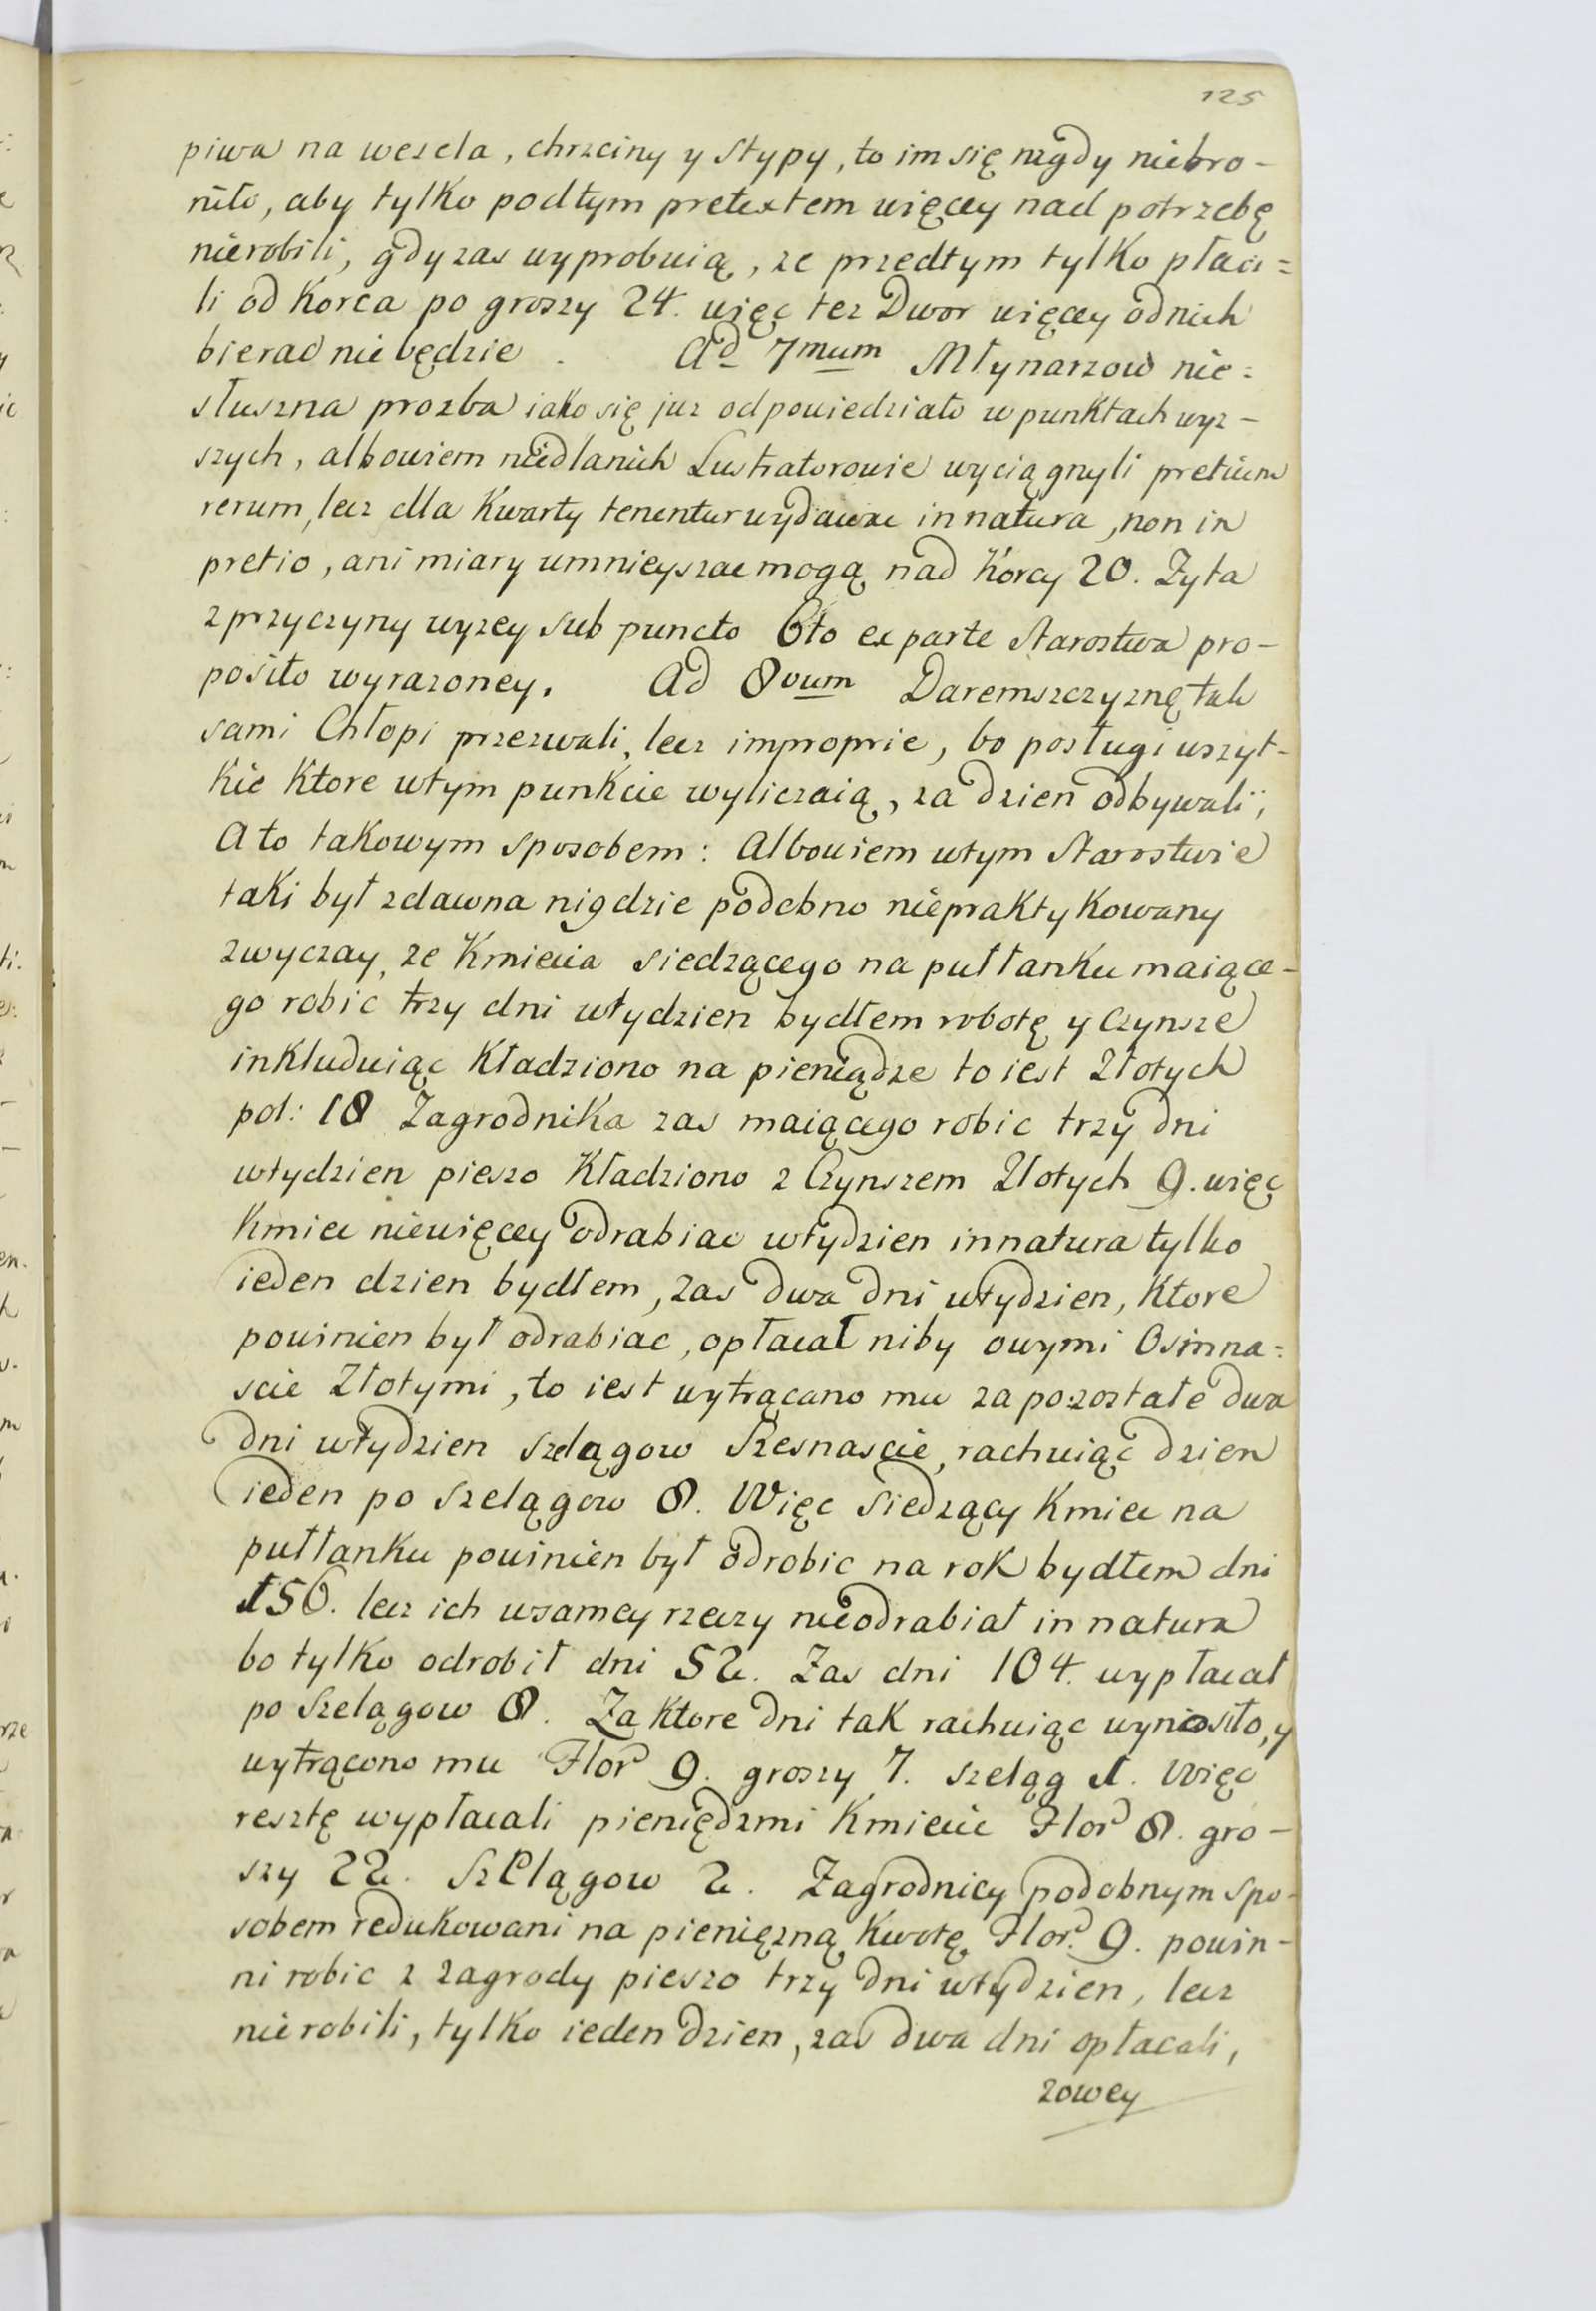 125
piwa na wesela, chrzciny y stypy, to im się nigdy niebro-
niło, aby tylko podtym pretextem więcey nad potrzebę
nierobili, gdy zas wyprobuią, ze przedtym tylko płaci=
li od Korca po groszy 24. więc tez Dwor więcey odnich
bierac nie będzie. Ad 7mum Młynarzow nie=
słuszna prozba iako się juz odpowiedziało w punktach wyz-
szych, albowiem niedlanich Lustratorowie wyciągnyli pretium
rerum, lecz dla Kwarty tenentur wydawac in natura, non in
pretio, ani miary umnieyszac mogą nad Korcy 20. Zyta
z przyczyny wyzey sub puncto 6to ex parte Starostwa pro-
posito wyrazoney. Ad 8vum Daremszczyznę tak
sami Chłopi przezwali, lecz improprie, bo posługi wszyt-
kie Ktore wtym punkcie wyliczaią, za dzien odbywali,
A to takowym sposobem: Albowiem wtym Starostwie
taki był zdawna nigdzie podobno niepraktykowany
zwyczay, ze Kmiecia siedzącego na pułłanku maiące-
go robic trzy dni wtydzien bydłem robotę y Czynsze
inkluduiąc Kładziono na pieniądze to iest Złotych
pol: 18 Zagrodnika zas maiącego robic trzy dni
wtydzien pieszo Kładziono z Czynszem Złotych 9. więc
Kmiec niewięcey odrabiac wtydzien in natura tylko
ieden dzien bydłem, zas dwa dni wtydzien, Ktore
powinien był odrabiac, opłacał niby owymi Osimna=
scie Złotymi, to iest wytrącano mu za pozostałe dwa
dni wtydzien szelągow Szesnascie, rachuiąc dzien
ieden po Szelągow 8. Więc siedzący Kmiec na
pułłanku powinien był odrobic na rok bydłem dni
156. lecz ich wsamey rzeczy nieodrabiał in natura
bo tylko odrobił dni 52. Zas dni 104. wypłacał
po Szelągow 8. Za Ktore dni tak rachuiąc wynosiło, y
wytrącono mu Flor 9. groszy 7. szeląg 1. Więc
resztę wypłacali pieniędzmi Kmiecie Flor 8. gro-
szy 22. Szelągow 2. Zagrodnicy podobnym spo-
sobem redukowani na pieniężną Kwotę Flor. 9. powin-
ni robic z zagrody pieszo trzy dni wtydzien, lecz
nie robili, tylko ieden dzien, zas dwa dni opłacali,
zowey